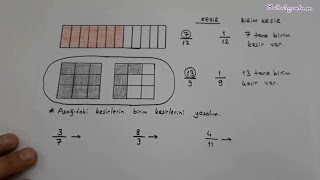 KESİR BİRİM KESİR
7/12 1/12 7 tane birim kesir var.
13/9 1/9 13 tane birim kesir var.
* Aşağıdaki kesirlerin birim kesirlerini yazalım.
3/7 → 8/3 → 4/11 →